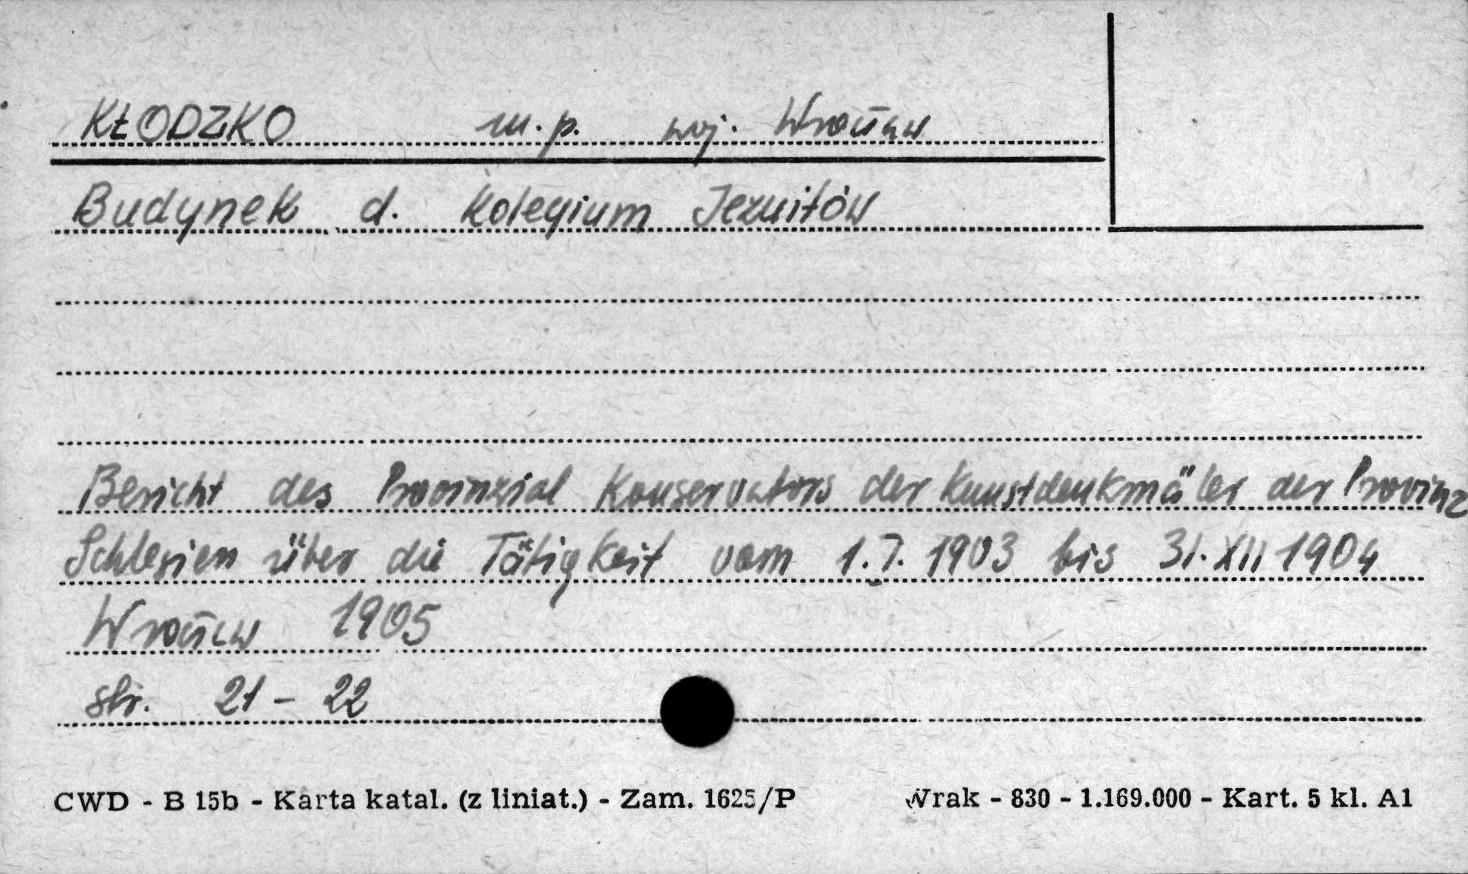 KŁODZKO m.p. woj. Wrocław
Budynek d. Kolegium Jezuitów
Bericht des Provinzial Konservators der Kunstdenkmäler der Provinz
Schlesien über die Tätigkeit vom 1.7.1903 bis 31.XII 1904
Wrocław 1905
str. 21 - 22
CWD - B 15b - Karta katal. (z liniat.) - Zam. 1625/P Wrak - 830 - 1.169.000 - Kart. 5 kl. A1